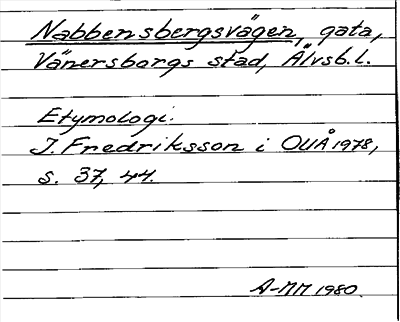 Nabbensbergsvägen, gata,
Vänersborgs stad, Älvsb. l.
Etymologi:
J. Fredriksson i OUÅ 1978,
s. 37, 44.
A-MM 1980.